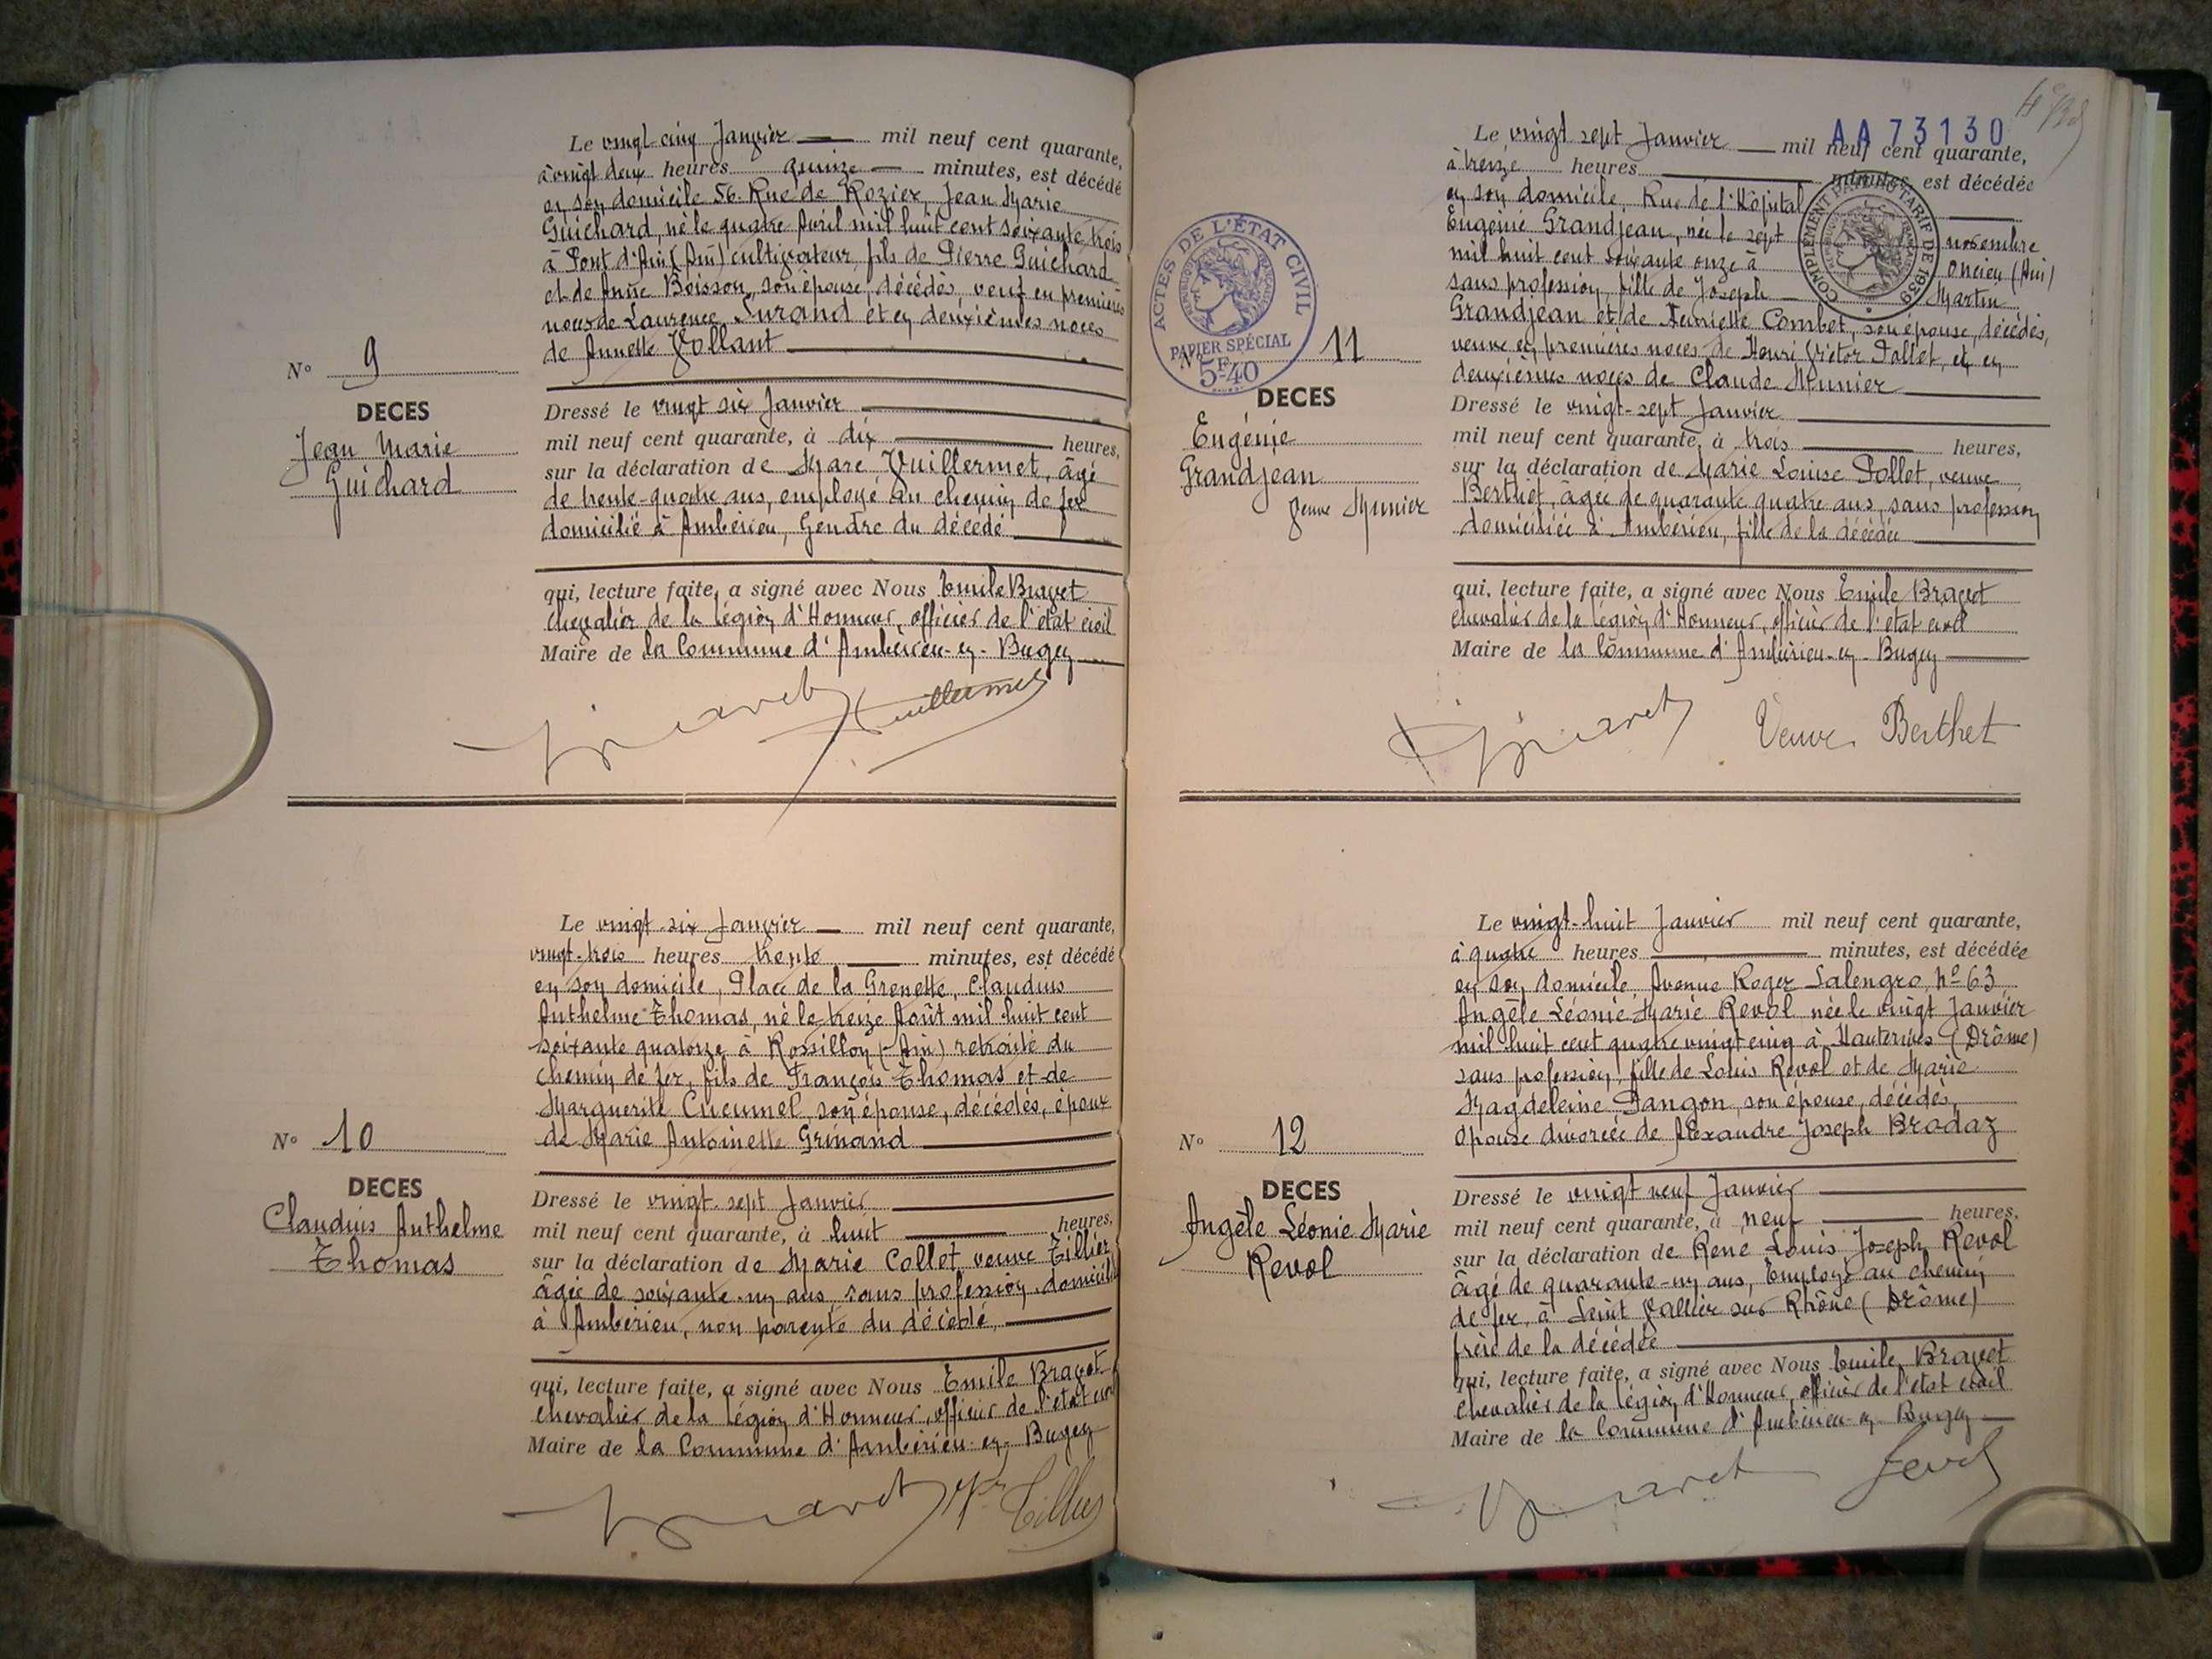 Le vingt-cinq Janvier mil neuf cent quarante,
à vingt deux heures quinze minutes, est décédé
en son domicile 56. Rue de Rozier, Jean Marie
Guichard, né le quatre Avril mil huit cent soixante trois
à Pont d'Ain (Ain) cultivateur, fils de Pierre Guichard
et de Anne Boisson, son épouse, décédés, veuf en premières
noces de Laurence Jurand et en deuxièmes noces
de Annette Vollant
N° 9
DECES
Jean Marie
Guichard
Dressé le vingt six Janvier
mil neuf cent quarante, à dix heures,
sur la déclaration de Marc Vuillermet, âgé
de trente-quatre ans, employé au chemin de fer
domicilié à Ambérieu, Gendre du décédé
qui, lecture faite, a signé avec Nous Emile Bravet
chevalier de la Légion d'Honneur, officier de l'état civil
Maire de la Commune d'Ambérieu-en-Bugey
Le vingt-six Janvier mil neuf cent quarante,
vingt-trois heures trente minutes, est décédé
en son domicile, Place de la Grenette, Claudius
Anthelme Thomas, né le treize Août mil huit cent
soixante quatorze à Rossillon (Ain) retraité du
chemin de fer, fils de François Thomas et de
Marguerite Cucumel, son épouse, décédés, époux
de Marie Antoinette Grinand
N° 10
DECES
Claudius Anthelme
Thomas
Dressé le vingt-sept Janvier
mil neuf cent quarante, à huit heures,
sur la déclaration de Marie Collet veuve Tillier
âgée de soixante-un ans sans profession, domicili
à Ambérieu, non parente du décédé,
qui, lecture faite, a signé avec Nous Emile Bravet
chevalier de la Légion d'Honneur, officier de l'état civil
Maire de la Commune d'Ambérieu-en-Bugey
AA 73130
Le vingt sept Janvier mil neuf cent quarante,
à treize heures minutes, est décédée
en son domicile, Rue de l'Hôpital
Eugénie Grandjean, née le sept novembre
mil huit cent soixante onze à Oncieu (Ain)
sans profession, fille de Joseph Martin
Grandjean et de Henriette Combet, son épouse, décédés,
veuve en premières noces de Henri Victor Pollet, et en
deuxièmes noces de Claude Munier
COMPLEMENT TARIF DE 1939
ACTES DE L'ÉTAT CIVIL
PAPIER SPÉCIAL
5F40
N° 11
DECES
Eugénie
Grandjean
Veuve Munier
Dressé le vingt-sept Janvier
mil neuf cent quarante, à trois heures,
sur la déclaration de Marie Louise Pollet, veuve
Berthet, âgée de quarante quatre ans, sans profession
domiciliée à Ambérieu, fille de la décédée
qui, lecture faite, a signé avec Nous Emile Bravet
chevalier de la Légion d'Honneur, officier de l'état civil
Maire de la Commune d'Ambérieu-en-Bugey
Veuve Berthet
Le vingt-huit Janvier mil neuf cent quarante,
à quatre heures minutes, est décédée
en son domicile, Avenue Roger Salengro, n° 63
Angèle Léonie Marie Revol née le vingt Janvier
mil huit cent quatre vingt cinq à Hauterives (Drôme)
sans profession, fille de Louis Revol et de Marie
Magdeleine Pangon, son épouse, décédés,
épouse divorcée de Alexandre Joseph Brodaz
N° 12
DECES
Angèle Léonie Marie
Revol
Dressé le vingt neuf Janvier
mil neuf cent quarante, à neuf heures,
sur la déclaration de René Louis Joseph Revol
âgé de quarante-un ans, Employé au chemin
de fer, à Saint Vallier sur Rhône (Drôme)
frère de la décédée
qui, lecture faite, a signé avec Nous Emile Bravet
chevalier de la Légion d'Honneur, officier de l'état civil
Maire de la Commune d'Ambérieu-en-Bugey